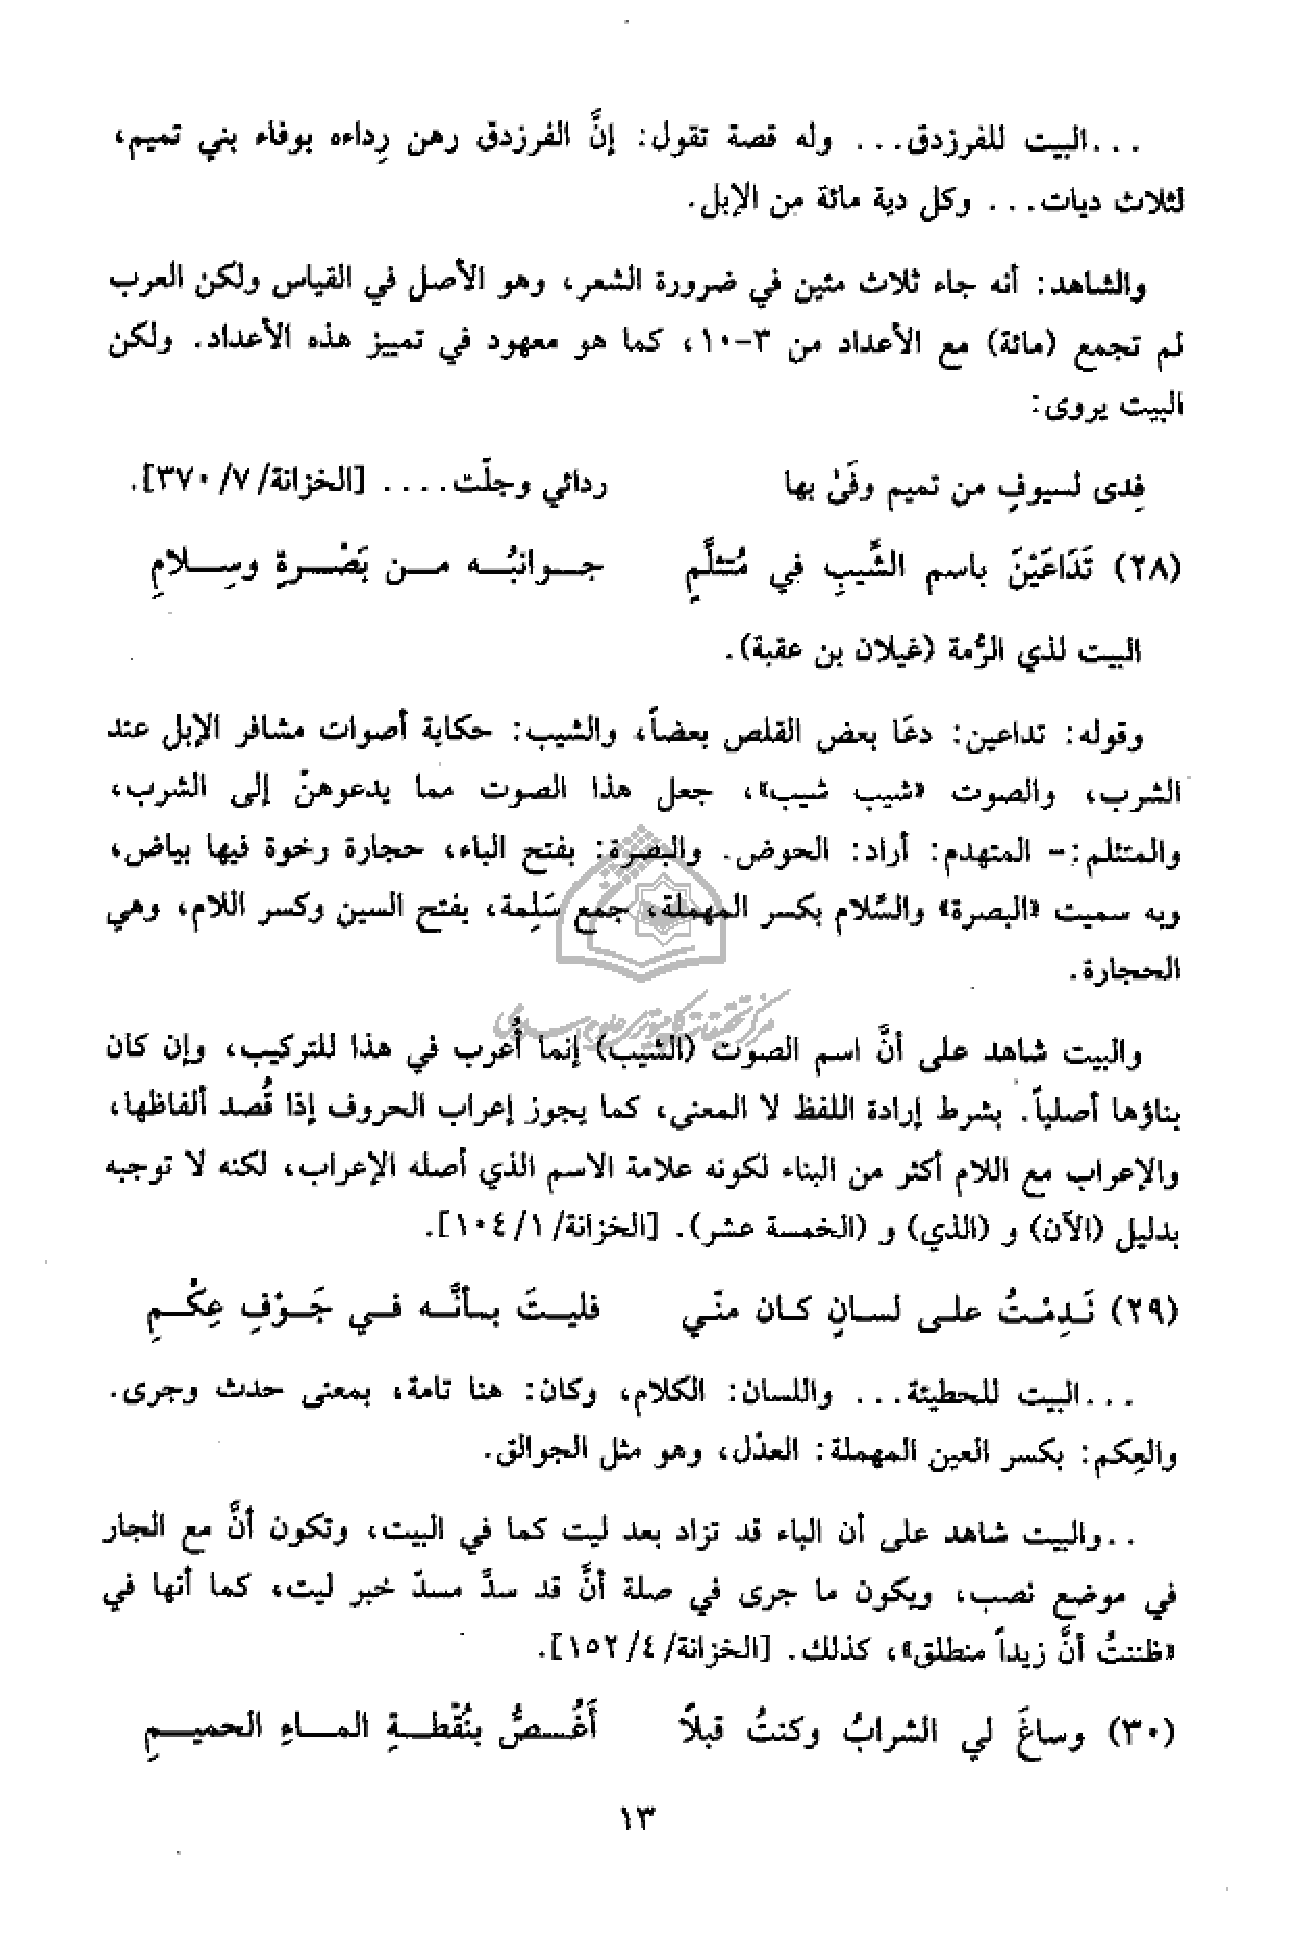 ...البيت للفرزدق... وله قصة تقول: إنَّ الفرزدق رهن رِداءه بوفاء بني تميم،
لثلاث ديات... وكل دية مائة من الإبل.
والشاهد: أنه جاء ثلاث مئين في ضرورة الشعر، وهو الأصل في القياس ولكن العرب
لم تجمع (مائة) مع الأعداد من ٣-١٠، كما هو معهود في تمييز هذه الأعداد. ولكن
البيت يروى:
فِدى لسيوفٍ من تميم وفَىٰ بها ردائي وجلّت.... [الخزانة/ ٧/ ٣٧٠].
(٢٨) تَدَاعَيْنَ باسم الشَّيبِ في مُتثلَّمٍ جوانبُه من بَصْرةٍ وسِلامِ
البيت لذي الرُّمة (غيلان بن عقبة).
وقوله: تداعين: دعَا بعض القلص بعضاً، والشيب: حكاية أصوات مشافر الإبل عند
الشرب، والصوت «شيب شيب»، جعل هذا الصوت مما يدعوهنّ إلى الشرب،
والمتثلم:- المتهدم: أراد: الحوض. والبصرة: بفتح الباء، حجارة رخوة فيها بياض،
وبه سميت «البصرة» والسِّلام بكسر المهملة، جمع سَلِمة، بفتح السين وكسر اللام، وهي
الحجارة.
مركز تحقيقات كامپيوتري علوم اسلامى
والبيت شاهد على أنَّ اسم الصوت (الشيب) إنما أُعرب في هذا للتركيب، وإن كان
بناؤها أصلياً. بشرط إرادة اللفظ لا المعنى، كما يجوز إعراب الحروف إذا قُصد ألفاظها،
والإعراب مع اللام أكثر من البناء لكونه علامة الاسم الذي أصله الإعراب، لكنه لا توجبه
بدليل (الآن) و (الذي) و (الخمسة عشر). [الخزانة/ ١/ ١٠٤].
(٢٩) نَدِمْتُ على لسانٍ كان منّي فليتَ بأنَّه في جَوْفِ عِكْمِ
...البيت للحطيئة... واللسان: الكلام، وكان: هنا تامة، بمعنى حدث وجرى.
والعِكم: بكسر العين المهملة: العدْل، وهو مثل الجوالق.
..والبيت شاهد على أن الباء قد تزاد بعد ليت كما في البيت، وتكون أنَّ مع الجار
في موضع نصب، ويكون ما جرى في صلة أنَّ قد سدَّ مسدّ خبر ليت، كما أنها في
«ظننتُ أنَّ زيداً منطلق»، كذلك. [الخزانة/ ٤/ ١٥٢].
(٣٠) وساغَ لي الشرابُ وكنتُ قبلاً أَغُصُّ بنُقْطةِ الماءِ الحميمِ
١٣